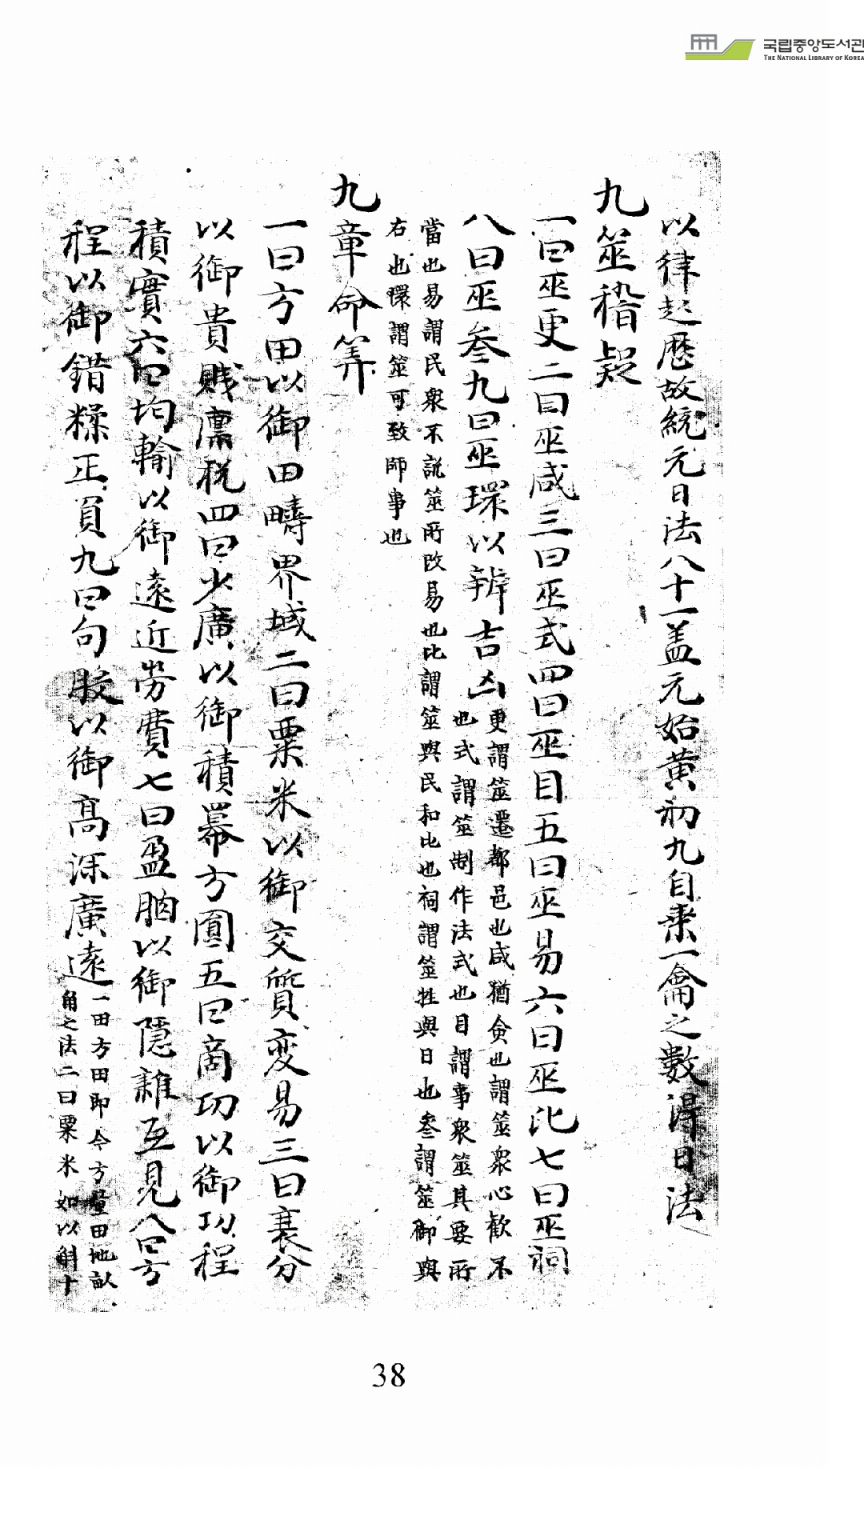 국립중앙도서관
THE NATIONAL LIBRARY OF KOREA
以律起曆故統元日法八十一盖元始黃初九自乘一龠之數得日法
九筮稽疑
一曰巫更二曰巫咸三曰巫式四曰巫目五曰巫易六曰巫比七曰巫祠
八曰巫叅九曰巫環以辨吉凶
更謂筮遷都邑也咸猶僉也謂筮衆心歡不
也式謂筮制作法式也目謂事衆筮其要所
當也易謂民衆不說筮所改易也比謂筮與民和比也祠謂筮牲與日也叅謂筮御與
右也環謂筮可致師事也
九章命筭
一曰方田以御田疇界域二曰粟米以御交質変易三曰衰分
以御貴賤廩稅四曰少廣以御積冪方圓五曰商功以御功程
積實六曰均輸以御遠近勞費七曰盈朒以御隱雜互見八曰方
程以御錯糅正負九曰句股以御高深廣遠
一田方田即今方量田地畝
角之法二曰粟米如以斛十
38